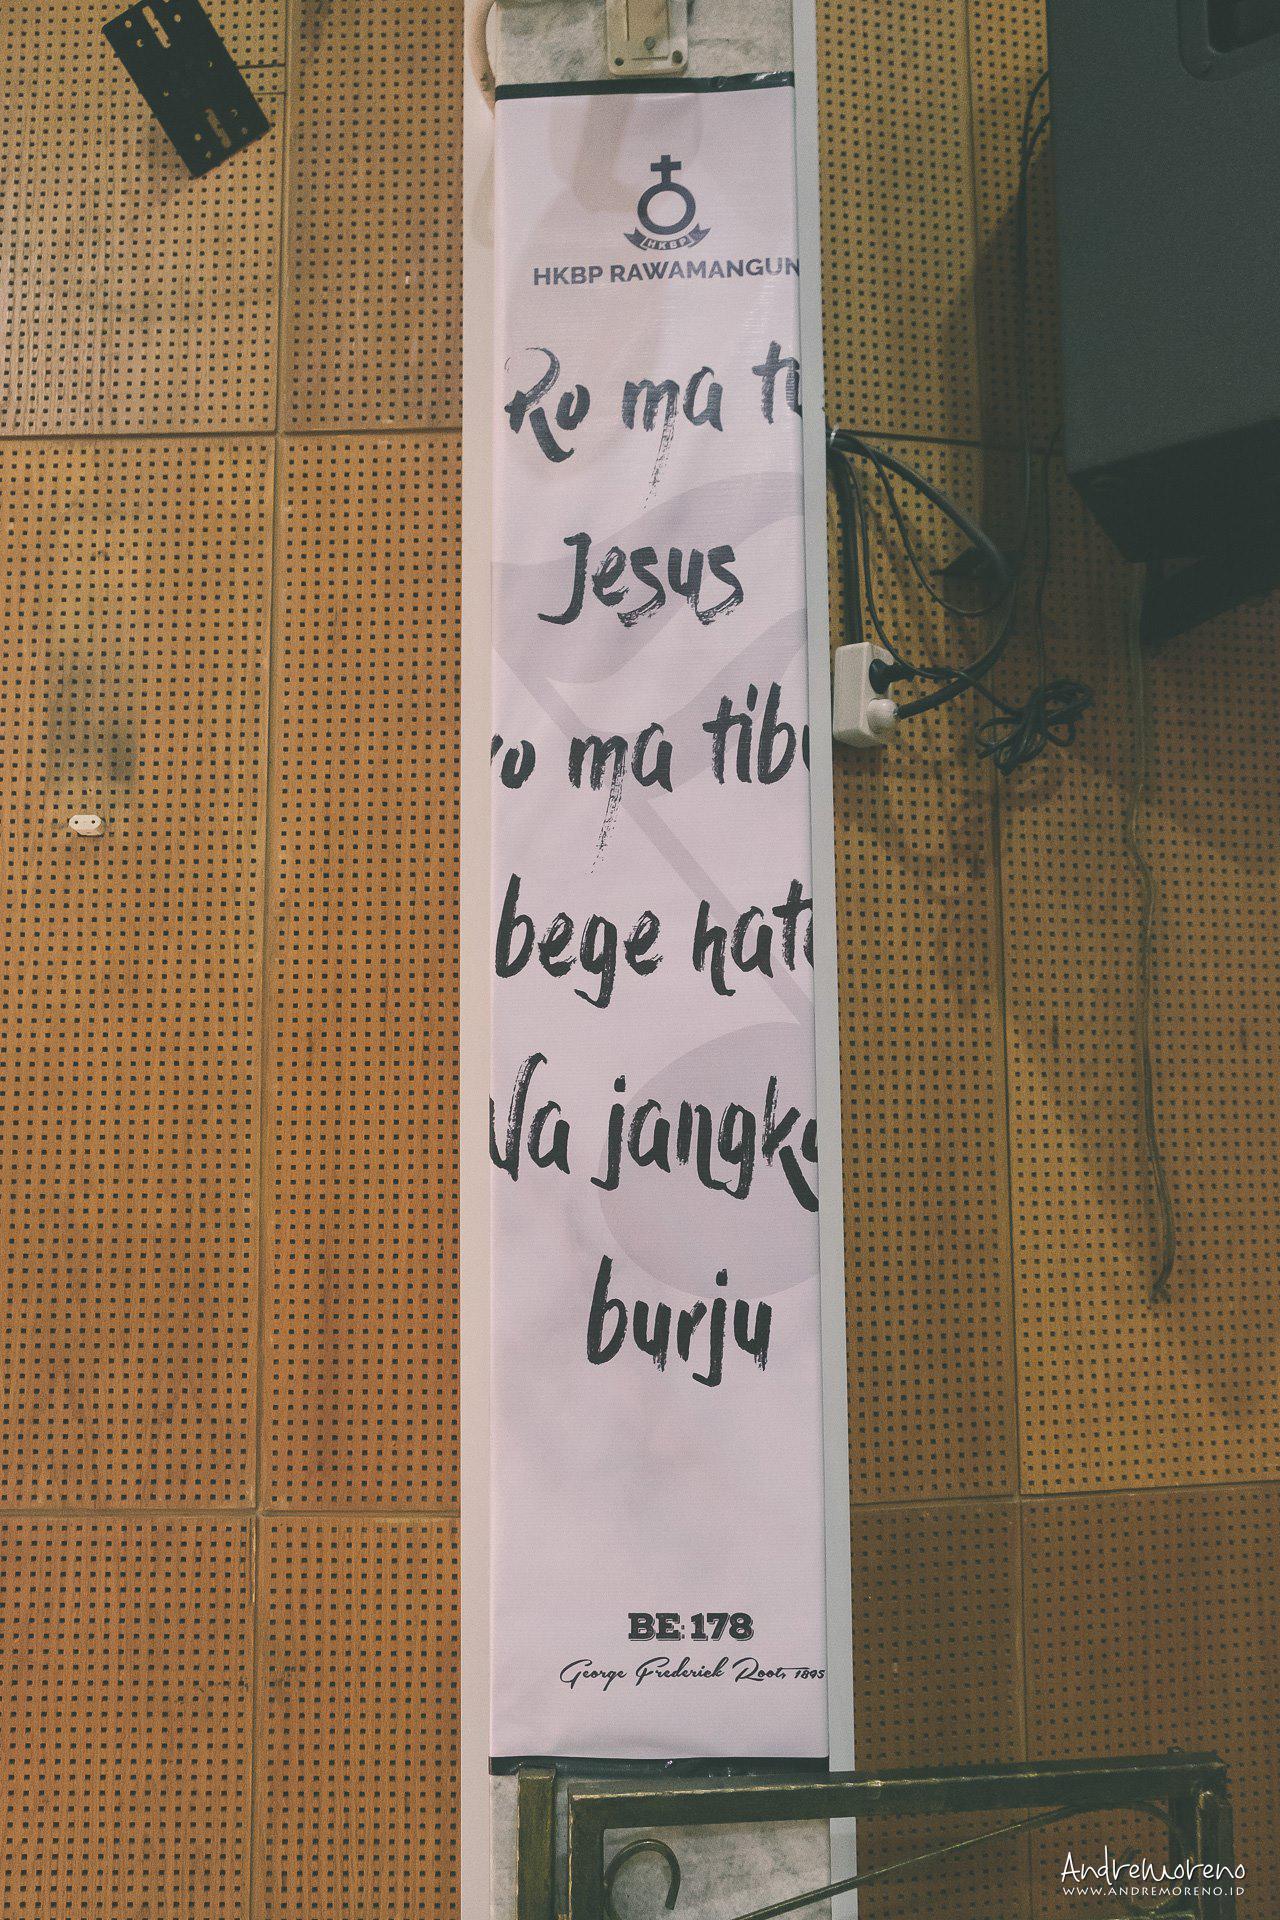 HKBP
HKBP RAWAMANGUN
Ro ma tu
Jesus
ro ma tibu
bege hata
Na jangka
burju
BE: 178
George Frederick Root, 1895
AndreMoreno
WWW.ANDREMORENO.ID